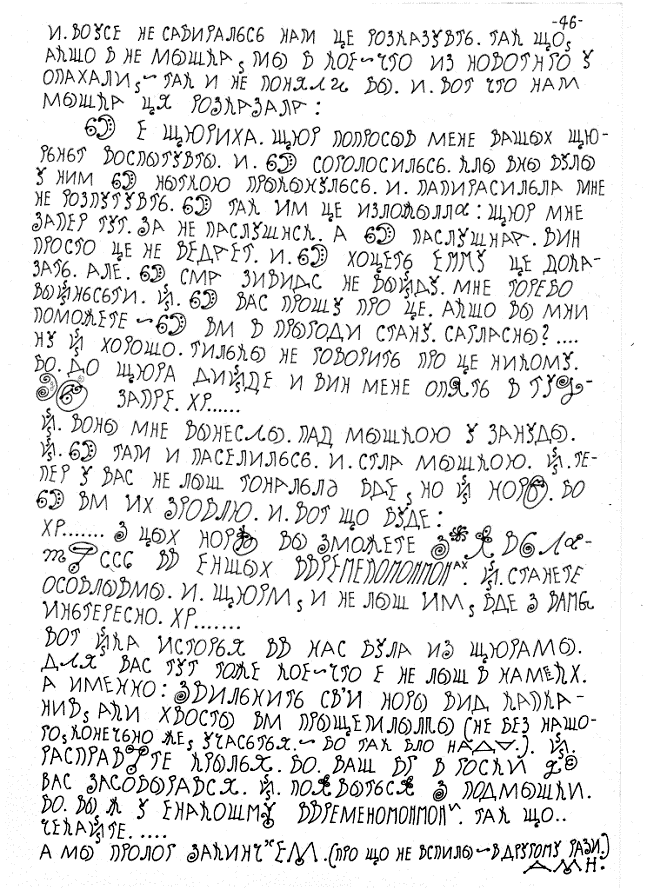 -46-
И. ВОУСЕ НЕ САБИРАЛЬСЬ НАМ ЦЕ РОЗКАЗУВТЬ. ТАК ЩО,
АКШО В НЕ МЫШКА, МЫ В КОЕ-ЧТО ИЗ НОВОТНГО У
ОПАХАЛИ, - ТАК И НЕ ПОНЯЛИ ВЫ. И. ВОТ ЧТО НАМ
МЫШКА ЦЯ РОЗКАЗАЛА:
Е ЩЮРИХА. ЩЮР ПОПРОСЫВ МЕНЕ ВАШЫХ ЩЮ-
РЬНЯТ ВОСПЫТУВТЫ. И. СОГОЛОСИЛЬСЬ. КЛЫ ВНЫ БУЛЫ
У НИМ НЫТКОЮ ПРЫКЫНУЛЬСЬ. И. ПАПИРАСИЛЬЛА МНЕ
НЕ РОЗПУТУВТЬ. ТАК ИМ ЦЕ ИЗЛОЖЫЛЛА: ЩЮР МНЕ
ЗАПЕР ТУТ. ЗА НЕ ПАСЛУШНСК. А ПАСЛУШНАР. ВИН
ПРОСТО ЦЕ НЕ ВЕДАЕТ. И. ХОЦЕТЬ ЕММУ ЦЕ ДОКА-
ЗАТЬ. АЛЕ. СМА ЗИВИДС НЕ ВЫЙДУ. МНЕ ГОРЕВО
ВЫЙНЬСЬТИ. Й. ВАС ПРОШУ ПРО ЦЕ. АКШО ВЫ МНИ
ПОМОЖЕТЕ - ВМ В ПРЫГОДИ СТАНУ. САГЛАСНЫ? ....
НУ Й ХОРОШО. ТИЛЬКЫ НЕ ГОВОРИТЬ ПРО ЦЕ НИКОМУ.
БО. ДО ЩЮРА ДИЙДЕ И ВИН МЕНЕ ОПЯТЬ В ТУ
ЗАПРЕ. ХР......
Й. ВОНЫ МНЕ ВЫНЕСЛЫ. ПАД МЫШКОЮ У ЗАНУДЫ.
Й. ТАМ И ПАСЕЛИЛЬСЬ. И. СТЛА МЫШКОЮ. Й. ТЕ-
ПЕР У ВАС НЕ ЛЫШ ВДЕ, НО Й НОРЫ. БО
ВМ ИХ ЗРОБЛЮ. И. ВОТ ЩО БУДЕ:
ХР....... З ЦЫХ НОР ВЫ ЗМОЖЕТЕ
ССС ВВ ЕНШЫХ ВВРЕМЕПОМОММОН АХ. Й. СТАНЕТЕ
ОСОБЛЫВМЫ. И. ЩЮРМ, И НЕ ЛЫШ ИМ, ВДЕ З ВАМЫ
ИНЬТЕРЕСНО. ХР.......
ВОТ ЙКА ИСТОРЬЯ ВВ НАС БУЛА ИЗ ЩЮРАМЫ.
ДЛЯ ВАС ТУТ ТОЖЕ КОЕ-ЧТО Е НЕ ЛЫШ В НАМЕКХ.
А ИМЕННО: ЗВИЛЬНИТЬ СВ'И НОРЫ ВИД КАПКА-
НИВ, АКИ ХВОСТЫ ВМ ПРЫЩЕМИЛЫЛЫ (НЕ БЕЗ НАШО-
ГО, КОНЕЧЬНО ЖЕ, УЧАСЬТЬЯ. - БО ТАК БЛО НАДА.). Й.
РАСПРАВТЕ КРЫЛЬЯ. БО. ВАШ ВГ В ГОСКИ
ВАС ЗАСОБЫРАВСЯ. Й. ПОЯВЫТЬСЯ З ПОДМЫШКИ.
БО. ВЫ Ж У ЕНАКОШМУ ВВРЕМЕНОМОНМОН. ТАК ЩО..
ЧЕКАЙТЕ. ....
А МЫ ПРОЛОГ ЗАКИНЧ'ЕМ. (ПРО ЩО НЕ ВСПИЛЫ - В ДРУГОМУ РАЗИ.)
АМН.